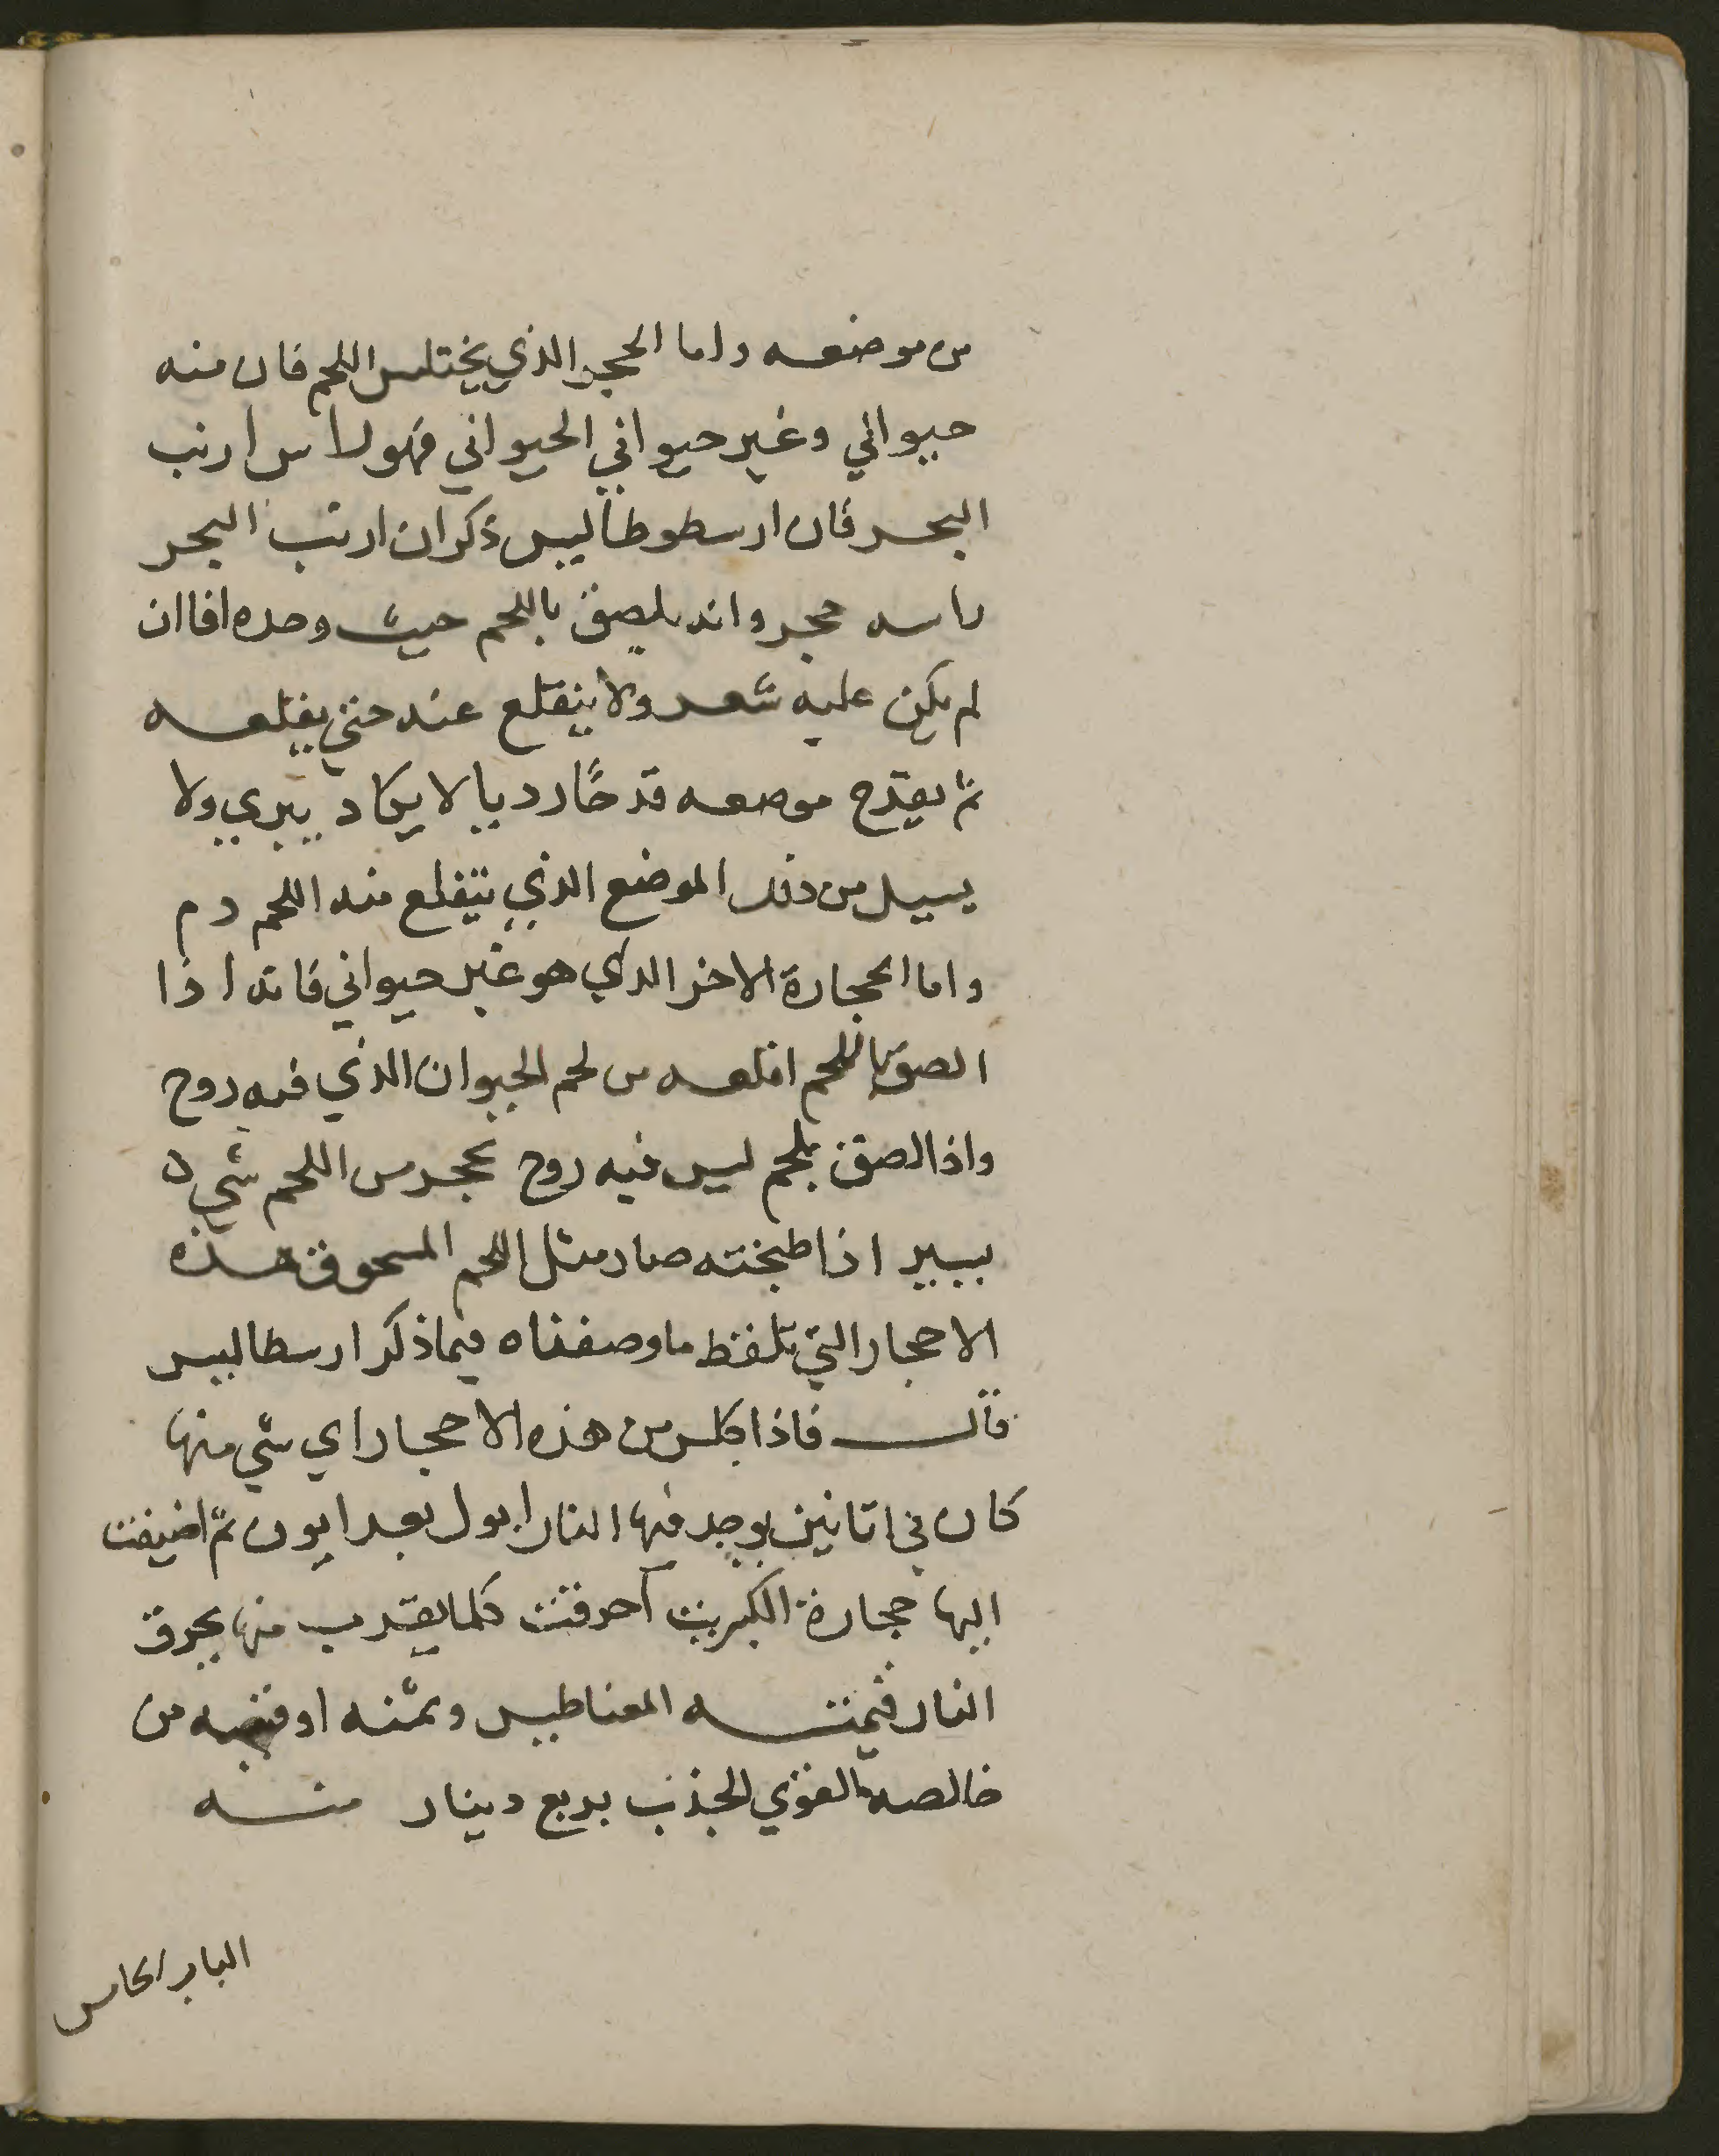 من موضعه واما الحجر الذي يختلس اللحم فان منه
حيواني وغير حيواني الحيواني فهو لاس ارنب
البحر فان ارسطوطاليس ذكر ان ارنب البحر
راسه حجر وانه يلصق باللحم حيث وحده افاان
لم يكن عليه شعر ولا ينقلع عنه حتي يقلعه
ثم يقدح موصعه قدحًا رديا لا يكاد يبري ولا
يسيل من ذلك الموضع الذي يتقلع منه اللحم دم
واما الحجارة الاخر الذي هو غير حيواني فانه اذا
الصق باللحم اقلعه من لحم الحيوان الذي فيه روح
واذا الصق بلحم ليس فيه روح عجر من اللحم شي
يسير اذا طبخته صار مثل اللحم المسحوق هذه
الاحجار التي تلفظ ما وصفناه فيما ذكر ارسطاليس
قال فاذا كلس من هذه الاحجار اي شي منها
كان في اتانين يوجد فيها النار ابول بعد ايون ثم اضيفت
اليها حجارة الكبريت احرقت كلما يقرب منها بحرق
النار قيمته المغناطيس وثمنه اوقيه من
خالصه القوي الجذب بربع دينار منه
الباب الخامس